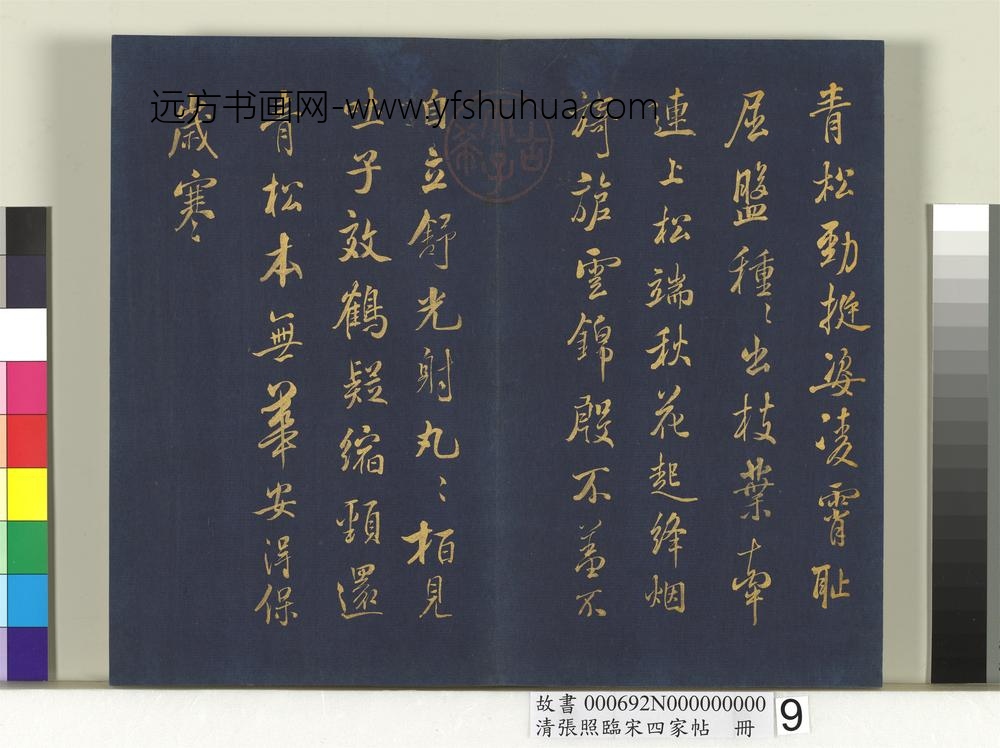 青松勁挺姿凌霄恥
屈盤種〻出枝葉牽
連上松端秋花起絳烟
旖旎雲錦殷不羞不
自立舒光射丸〻柏見
吐子效鶴疑縮頸還
青松本無華安得保
歲寒
古希天子
远方书画网-www.yfshuhua.com
故書 000692N000000000
清張照臨宋四家帖 冊
9